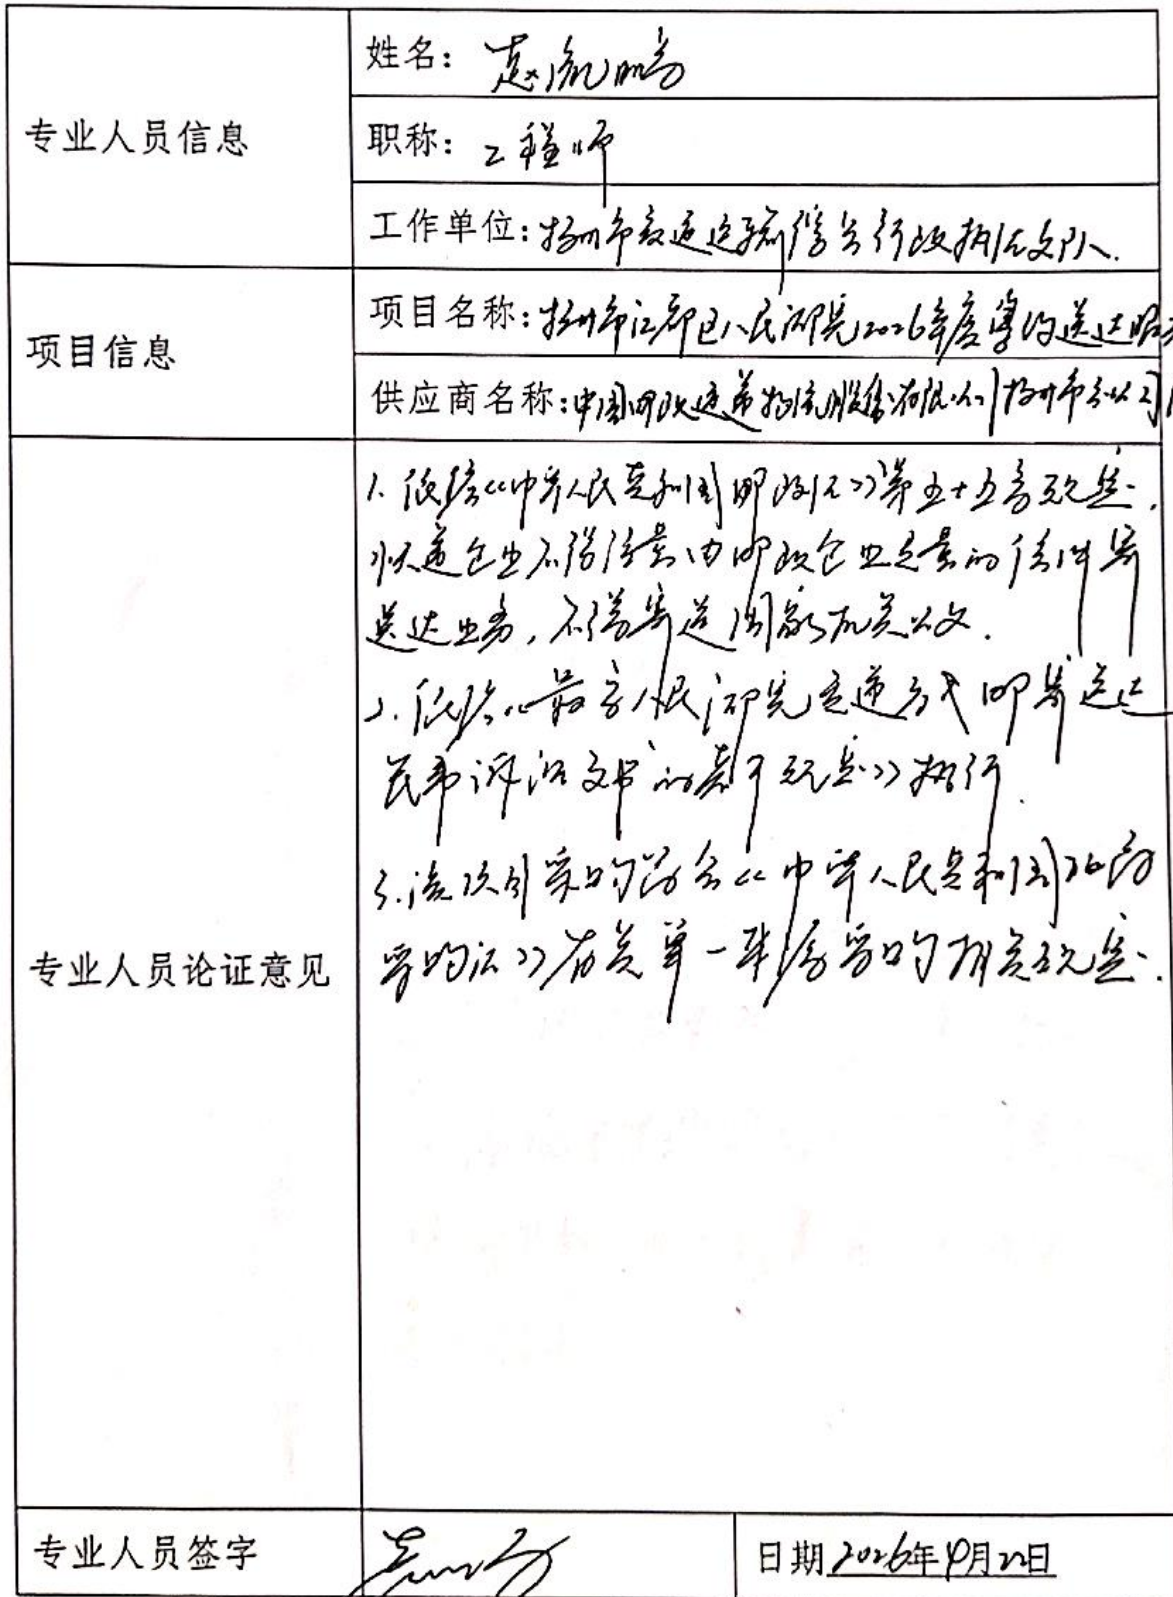 专业人员信息
姓名：
职称：工程师
工作单位：扬州市交通运输综合行政执法支队.
项目信息
项目名称：扬州市江都区人民法院2026年度专递送达服务
供应商名称：中国邮政速递物流股份有限公司扬州市分公司
专业人员论证意见
1. 依据《中华人民共和国邮政法》第五十五条规定，
快递企业不得经营由邮政企业专营的信件寄
送达业务，不得寄送国家机关公文.
2. 依据《最高人民法院专递方式邮寄送达
民事诉讼文书的若干规定》执行.
3. 该次采购符合《中华人民共和国政府
采购法》有关单一来源采购相关规定.
专业人员签字
日期 2026年4月22日